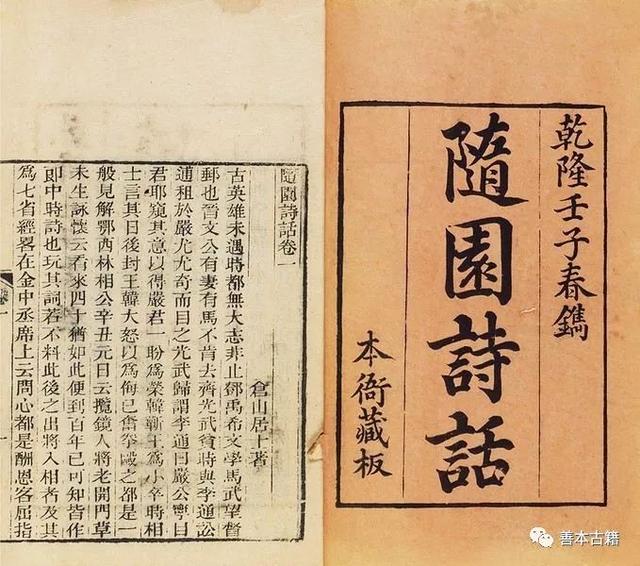 乾隆壬子春鐫
隨園詩話
本衙藏板
隨園詩話卷一
倉山居士著
古英雄未遇時都無大志非止鄧禹希文學馬武望督
郵也晉文公有妻有馬不肯去齊光武貧時與李通訟
逋租於嚴尤尤奇而目之光武歸謂李通曰嚴公寧目
君耶窺其意以得嚴君一盼爲榮韓蘄王爲小卒時相
士言其日後封王韓大怒以爲侮已奮拳毆之都是一
般見解鄂西林相公辛丑元日云攬鏡人將老開門草
未生詠懷云看來四十猶如此便到百年已可知皆作
郎中時詩也玩其詞若不料此後之出將入相者及其
爲七省經畧在金中丞席上云問心都是酬恩客屈指
善本古籍